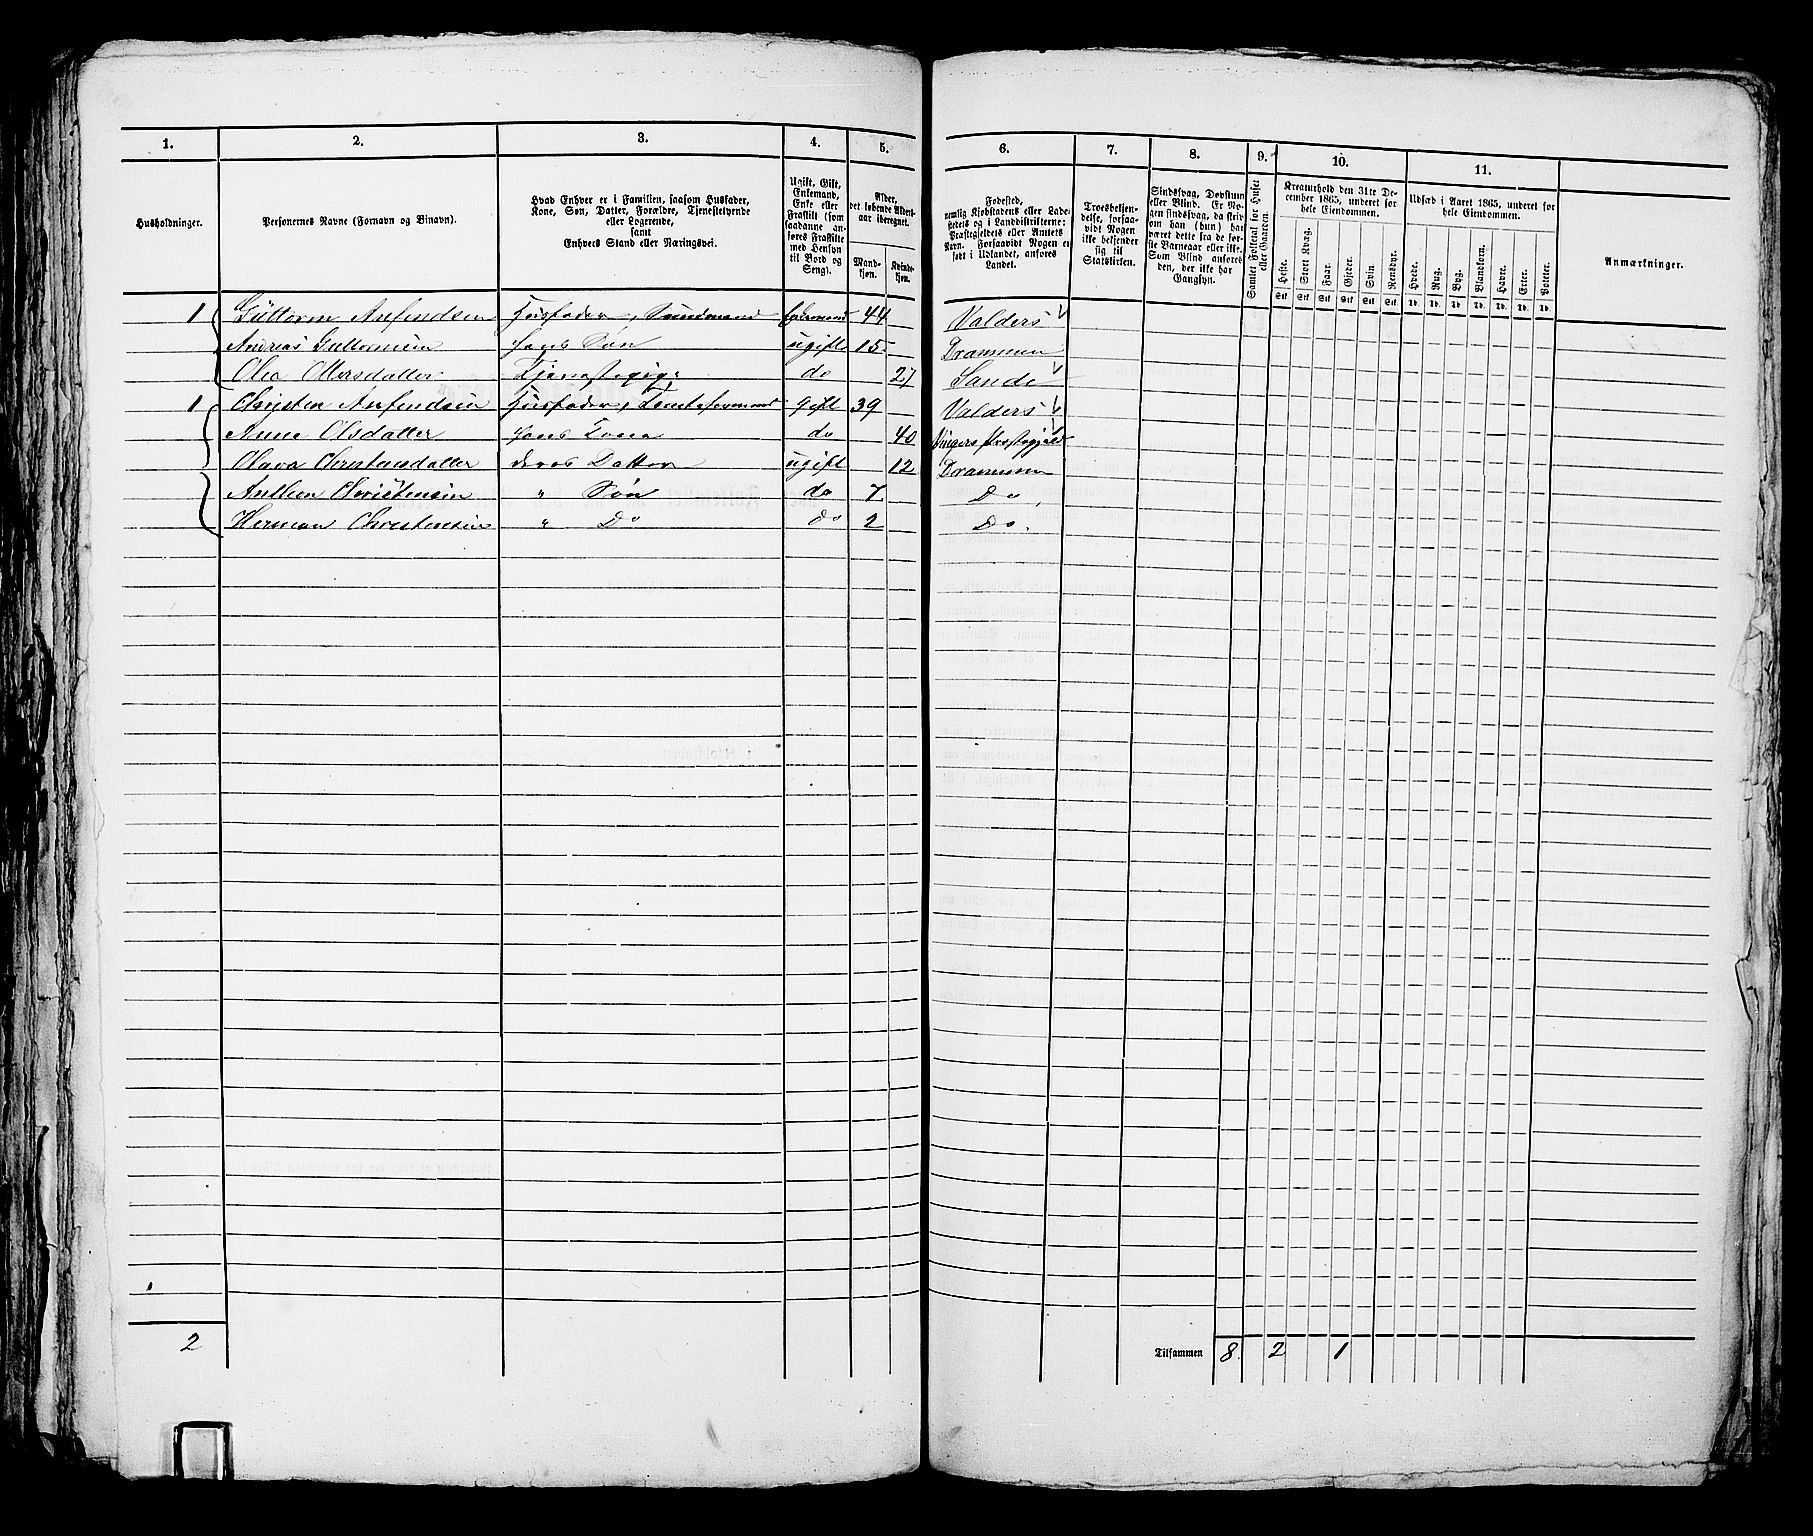 1. 2. 3. 4. 5. 6. 7. 8. 9. 10. 11.
Husholdninger.
Personernes Navne (Fornavn og Binavn).
Hvad Enhver er i Familien, saasom Husfader,
Kone, Søn, Datter, Forældre, Tjenestetyende
eller Logerende,
samt
Enhvers Stand eller Næringsvei.
Ugift, Gift,
Enkemand,
Enke eller
Fraskilt (som
saadanne an-
føres Fraskilte
med Hensyn
til Bord og
Seng).
Alder,
det løbende Alders-
aar iberegnet.
Mand-
kjøn.
Kvinde-
kjøn.
Fødested,
nemlig Kjøbstadens eller Lade-
stedets og i Landdistrikterne:
Præstegjeldets eller Amtets
Navn. Forsaavidt Nogen er
født i Udlandet, anføres
Landet.
Troesbekjen-
delse, forsaa-
vidt Nogen
ikke bekjender
sig til
Statskirken.
Sindssvag, Døvstum
eller Blind. Er No-
gen sindssvag, da skriv
om han (hun) har
været dette fra de før-
ste Barneaar eller ikke.
Som Blind anføres
den, der ikke har
Gangsyn.
Samlet Folketal for Huset
eller Gaarden.
Kreaturhold den 31te De-
cember 1865, underet for
hele Eiendommen.
Heste. Stort Kvæg. Faar. Gjeder. Svin. Rensdyr.
Stk Stk Stk Stk Stk Stk
Udsæd i Aaret 1865, underet for
hele Eiendommen.
Hvede. Rug. Byg. Blandkorn. Havre. Erter. Poteter.
Td. Td. Td. Td. Td. Td. Td.
Anmærkninger.
1 Guttorm Arefendsen Husfader, 44 Valders
Andreas Guttormsen hans Søn ugift 15 Drammen
Olea Tjenestepige do 27 Sande
1 Christen Arefendsen Husfader, gift 39 Valders
Anne Olsdatter hans Kone do 40
Olava Christensdatter deres Datter ugift 12 Drammen
Christensen " Søn do 7 Do
Herman Christensen " Do do 2 Do.
2
Tilsammen 8. 2 1